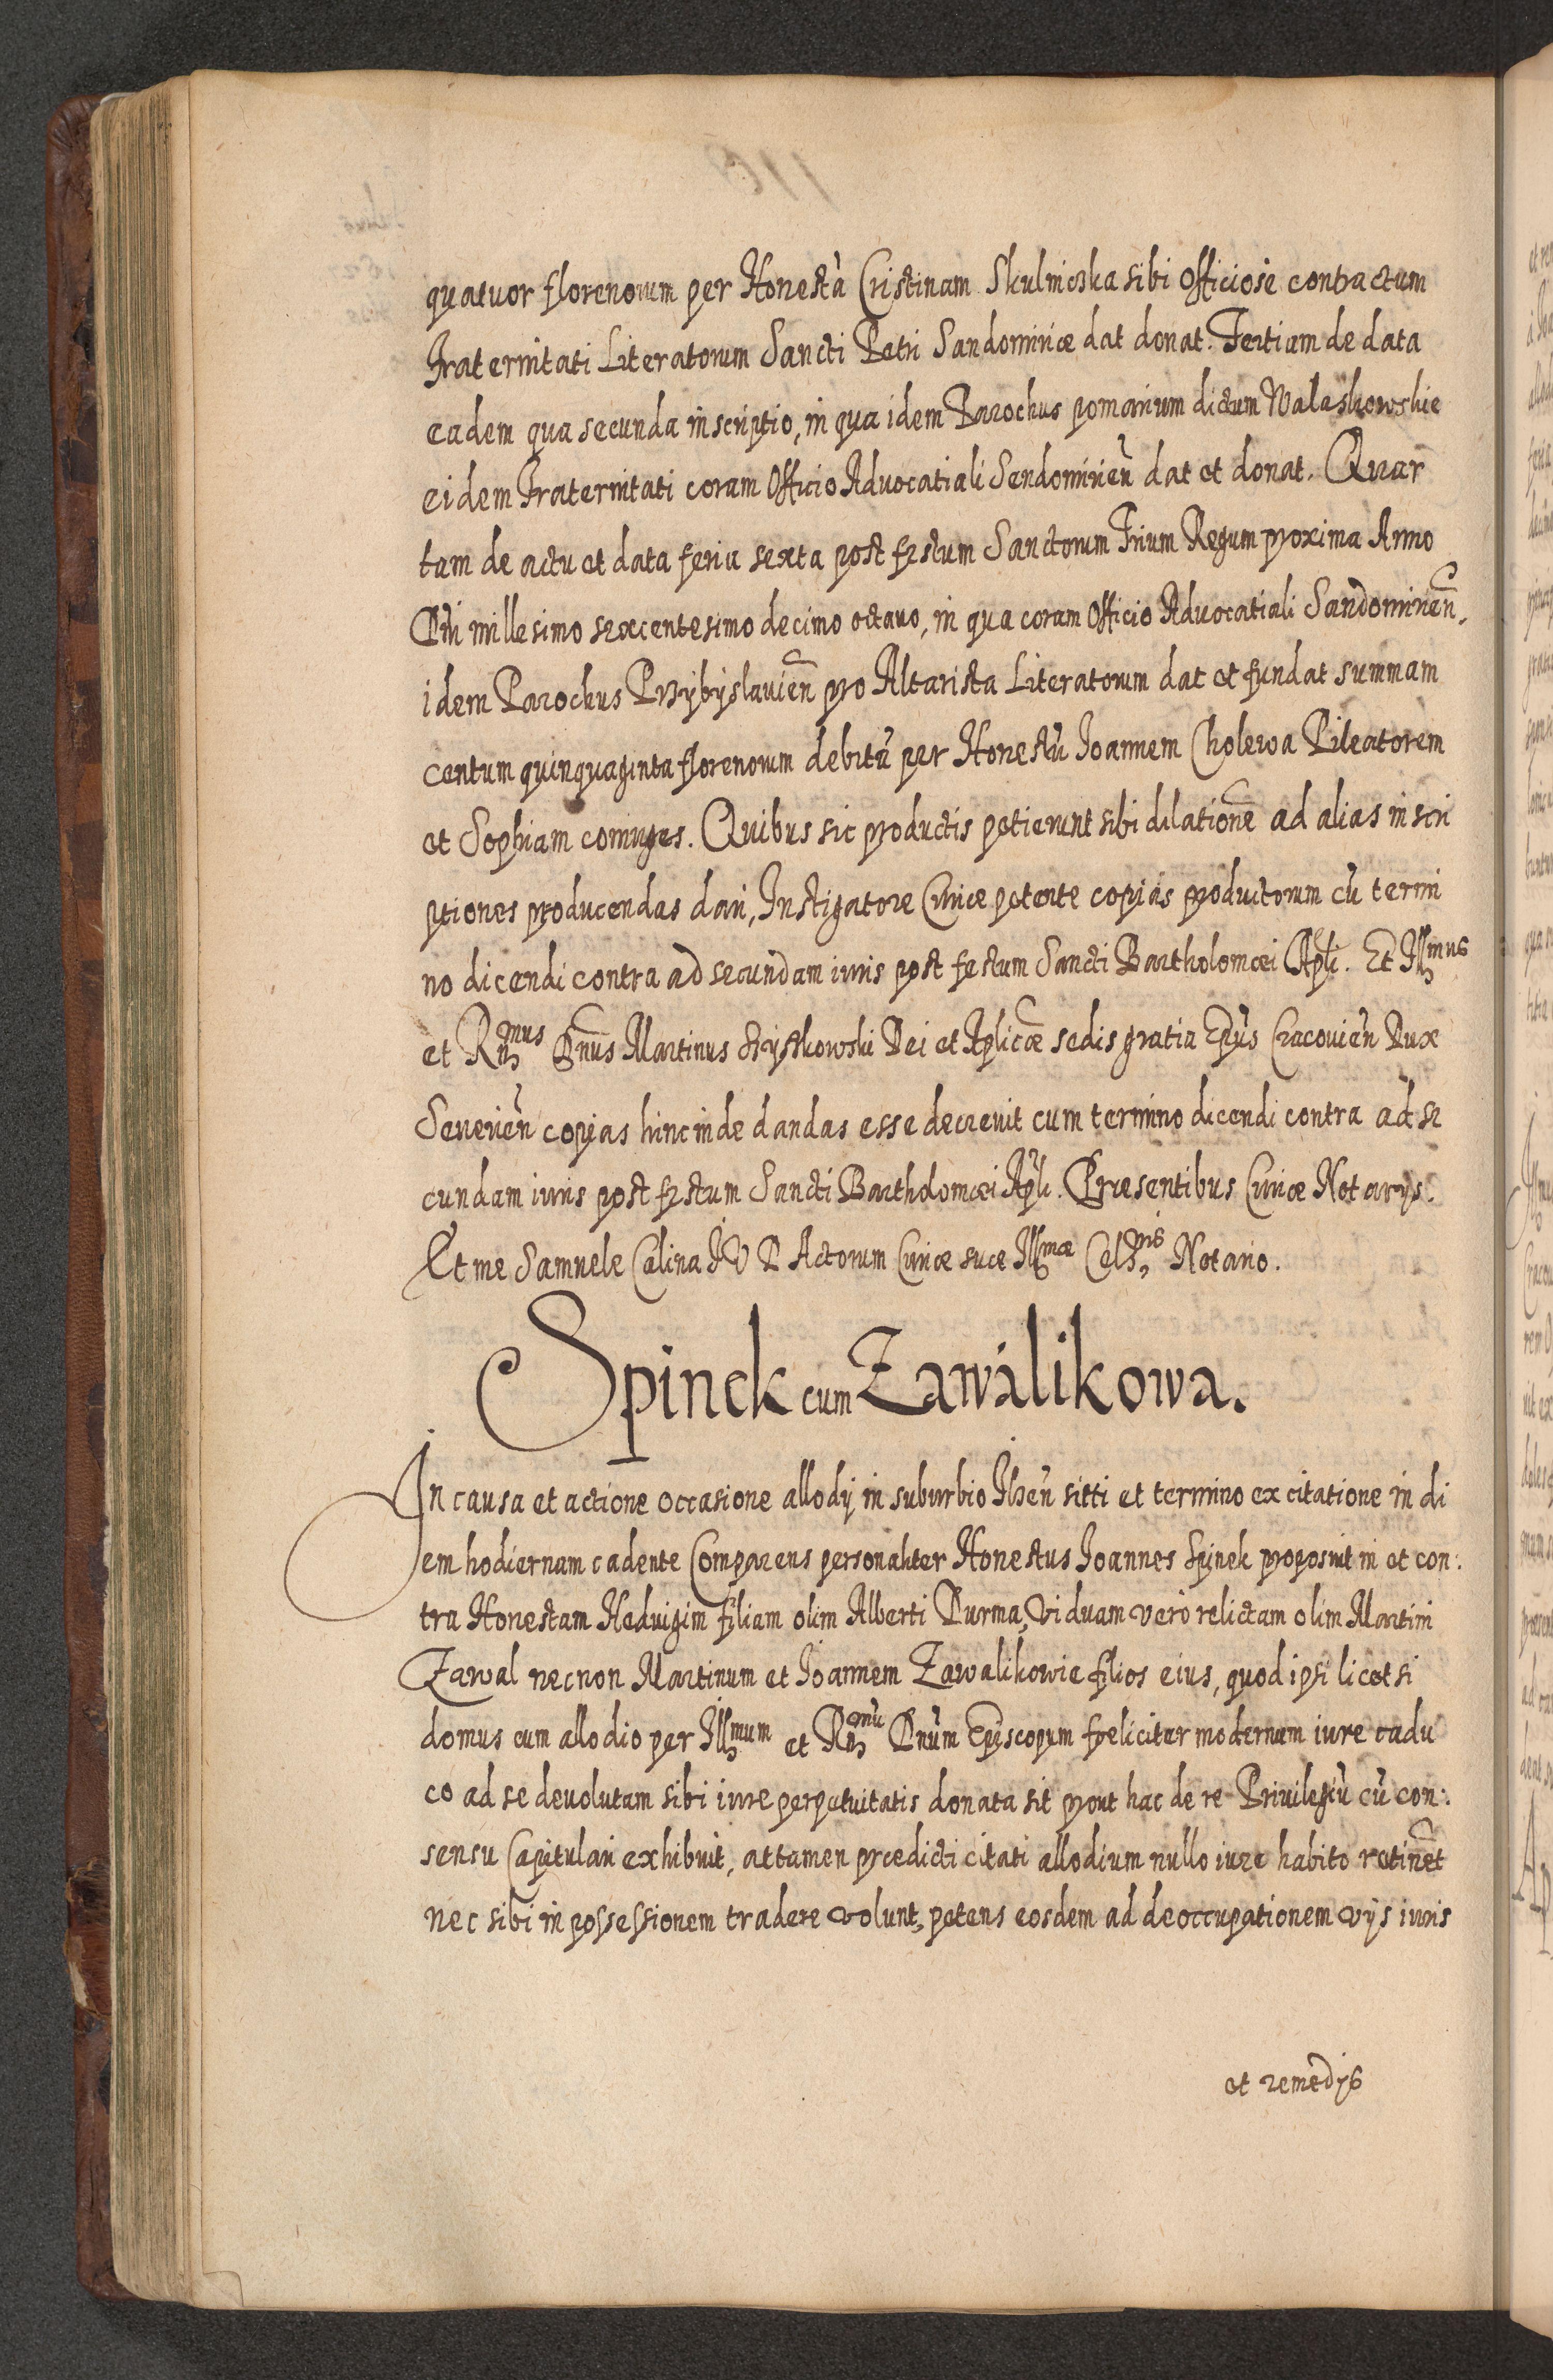 quatuor florenorum per Honestā Cristinam Skulniczka sibi Officiosè contractum
Fraternitati Literatorum Sancti Petri Sandomiriæ dat donat. Tertiam de data
eadem qua secunda inscriptio, in qua idem Parochus pomarium dictum Walaskowskie
eidem Fraternitati coram Officio Advocatiali Sendomirien̄ dat et donat. Quar
tam de actu et data feria sexta post festum Sanctorum Trium Regum proxima Anno
Dn̄i millesimo sexcentesimo decimo octauo, in qua coram Officio Advocatiali Sandomirien̄.
idem Parochus Przybyslauien̄ pro Altarista Literatorum dat et fundat summam
centum quinquaginta florenorum debitū per Honestū Joannem Cholewa Pileatorem
et Sophiam coniuges. Quibus sic productis petierunt sibi dilationē ad alias inscri
ptiones producendas dari, Instigatore Curiæ petente copias productorum cū termi
no dicendi contra ad secundam iuris post festum Sancti Bartholomæi Apli. Et Illmus
et Rn̄mus Dn̄us Martinus Szyszkowski Dei et Aplicæ sedis gratia Epūs Cracouien̄ Dux
Seuerien̄ copias hinc inde dandas esse decreuit cum termino dicendi contra ad se
cundam iuris post festum Sancti Bartholomæi Apli. Præsentibus Curiæ Notarys.
Et me Samuele Calina I V D Actorum Curiæ suæ Illmæ Celsnis Notario.
Spinek cum Zawalikowa.
In causa et actione occasione allodij in suburbio Ilzen̄ sitti et termino ex citatione in di
em hodiernam cadente Comparens personaliter Honestus Joannes Spinek proposuit in et con:
tra Honestam Heduigim filiam olim Alberti Durma, Viduam verò relictam olim Martini
Zawal necnon Martinum et Joannem Zawalikowie filios eius, quod ipsi licet si
domus cum allodio per Illmum et Rn̄mū Dn̄um Episcopum fœliciter modernum iure cadu
co ad se deuolutam sibi iure perpetuitatis donata sit prout hac de re Priuilegiū cū con:
sensu Capitulari exhibuit, attamen prædicti citati allodium nullo iure habito retinēt
nec sibi in possessionem tradere volunt, petens eosdem ad deoccupationem vijs iuris
et remedijs